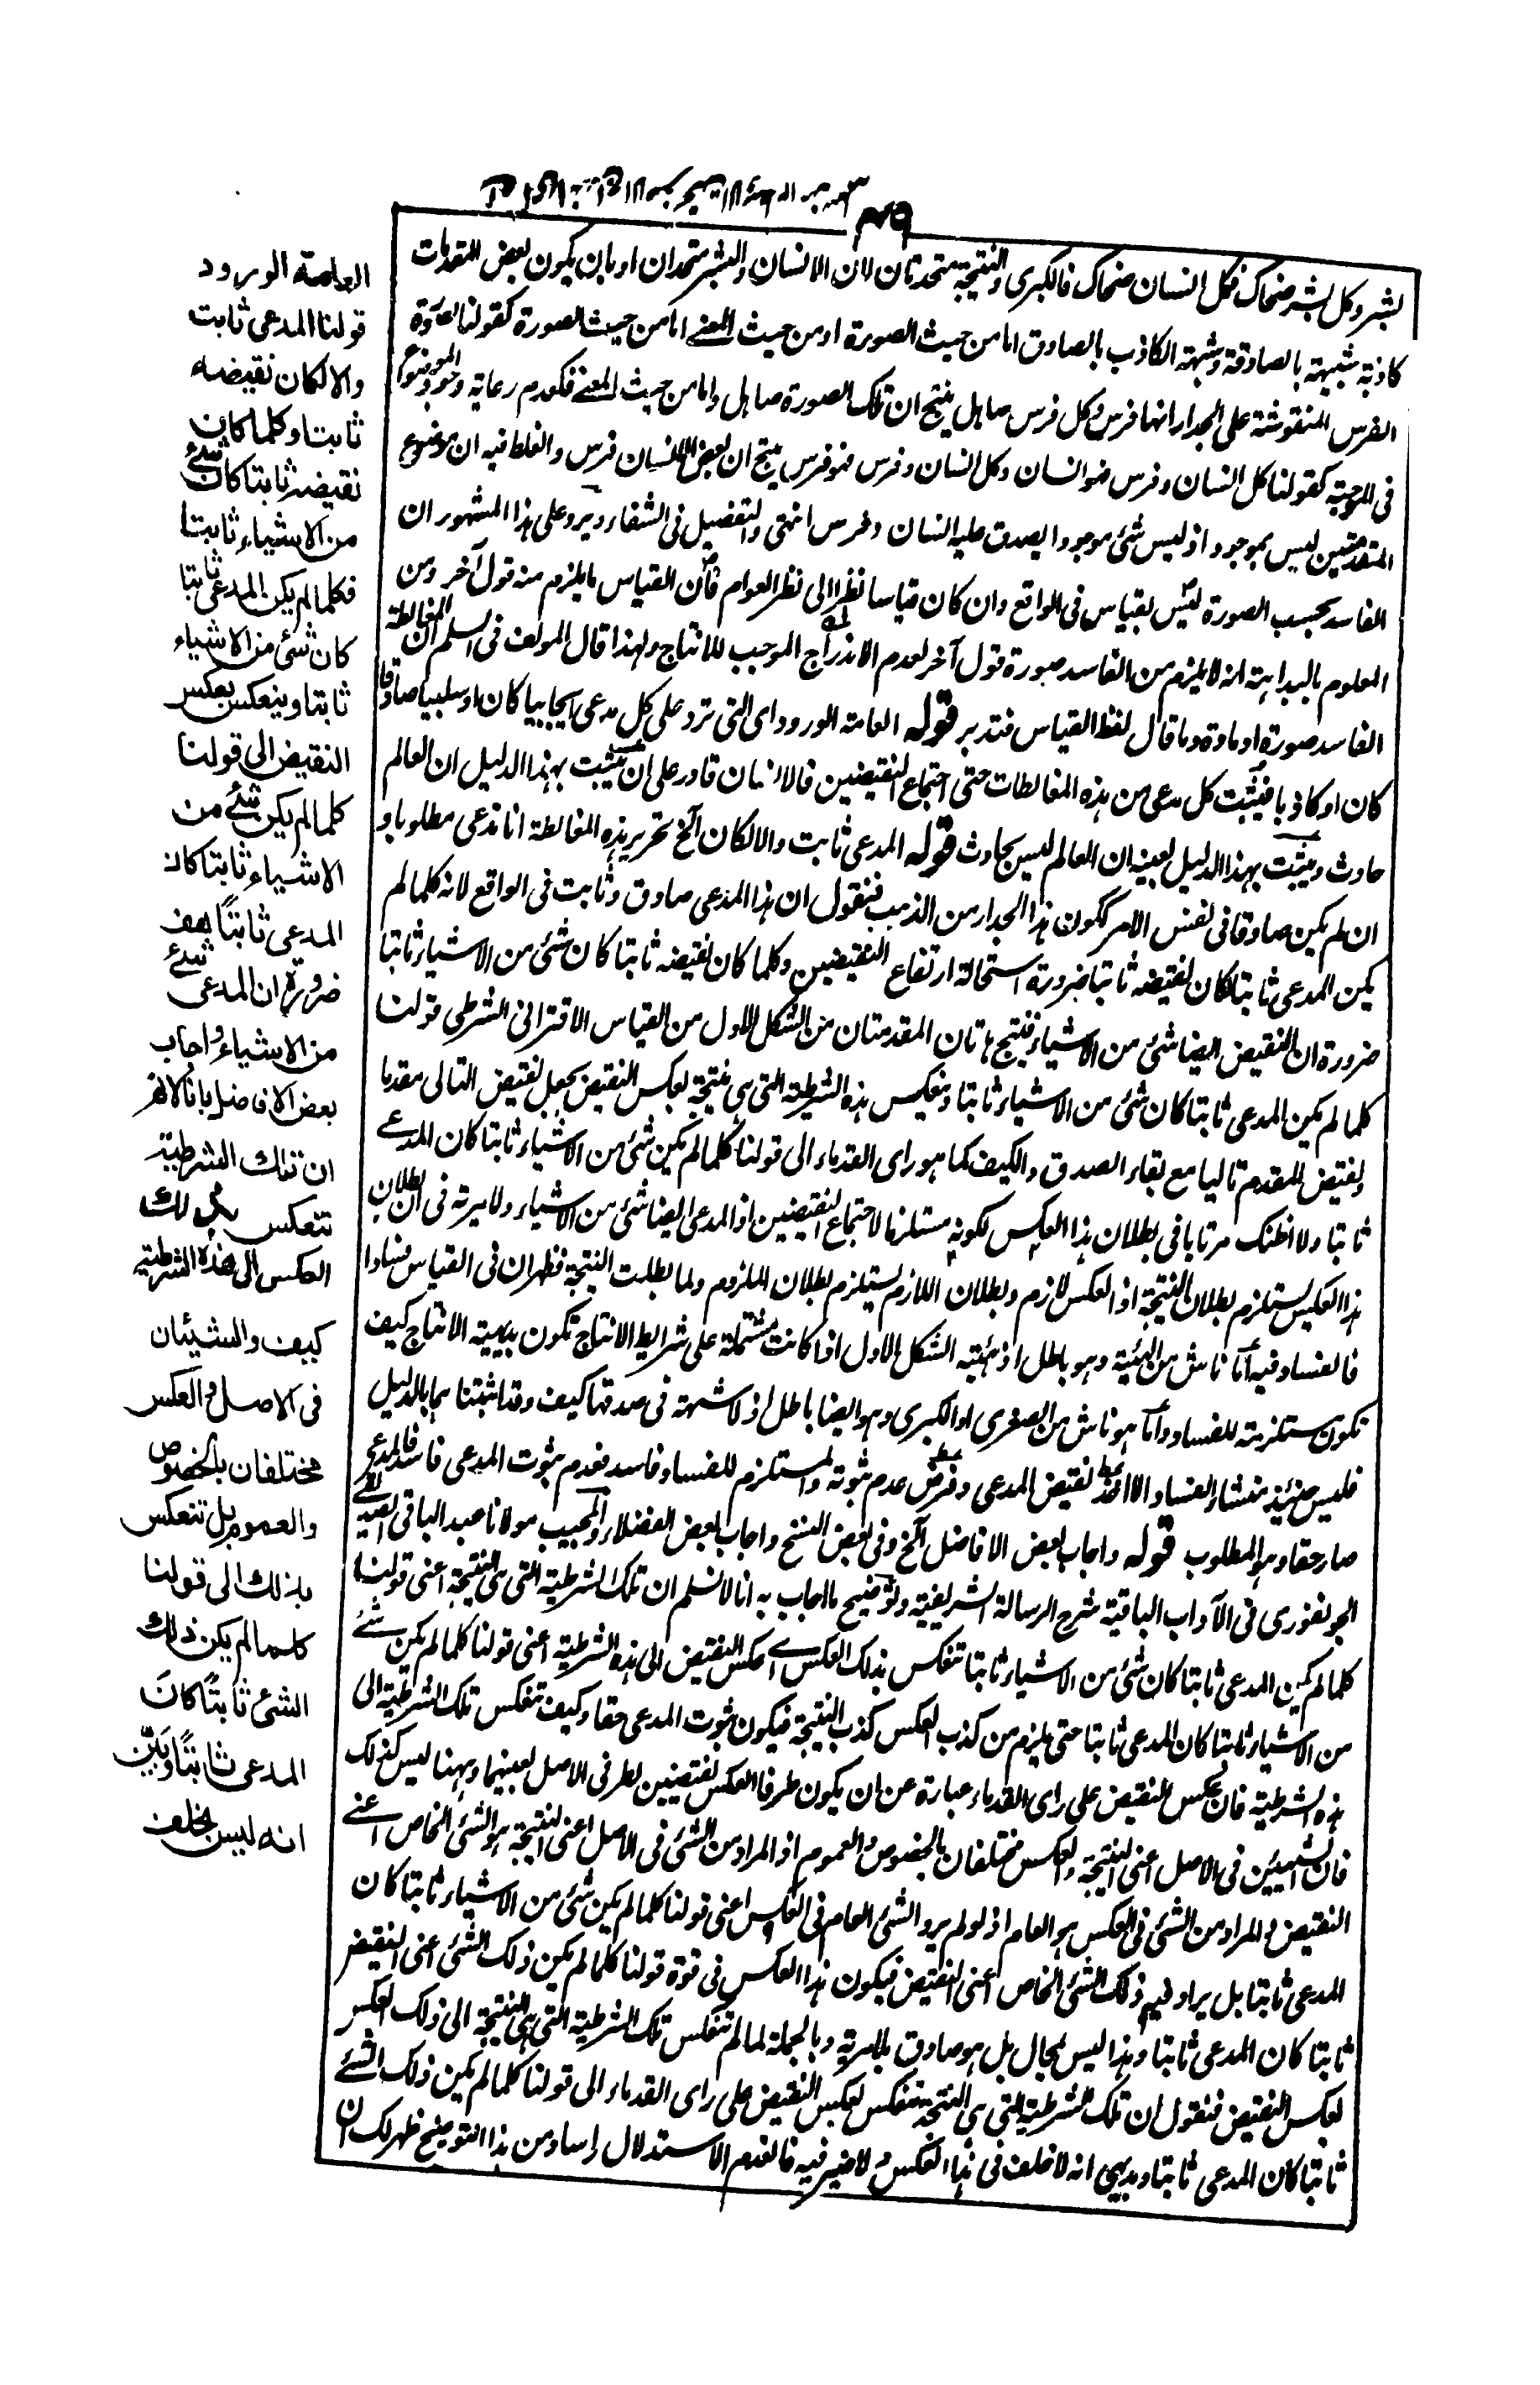 بشر وكل بشر ضحاك فكل انسان ضحاك فالكبرى والنتيجة متحدتان لان الانسان والبشر متحدان او بان يكون بعض المقدمات
كاذبة شبيهة بالصادقة وشبهة الكاذب بالصادق اما من حيث الصورة او من حيث المعنى اما من حيث الصورة كقولنا لصورة
الفرس المنقوشة على الجدار انها فرس وكل فرس صاهل ينتج ان تلك الصورة صاهل واما من حيث المعنى فكعدم رعاية وجود الموضوع
فى الموجبة كقولنا كل انسان وفرس فهو انسان وكل انسان وفرس فهو فرس ينتج ان بعض الانسان فرس والغلط فيه ان موضوع
المقدمتين ليس بموجود اذ ليس شئ موجود يصدق عليه انسان وفرس انتهى والتفصيل فى الشفاء ويرد على هذا المشهور ان
الفاسد بحسب الصورة ليس بقياس فى الواقع وان كان قياسا نظرا الى نظر العوام فان القياس ما يلزم منه قول آخر ومن
المعلوم بالبداهة انه لا يلزم من الفاسد صورة قول آخر لعدم الاندراج الموجب للانتاج ولهذا قال المولف فى السلم ان المغالطة
الفاسد صورة او مادة وما قال لفظ القياس فتدبر قوله العامة الورود اى التى ترد على كل مدعى ايجابيا كان او سلبيا صادقا
كان او كاذبا فيثبت كل مدعى من هذه المغالطات حتى اجتماع النقيضين فالانسان قادر على ان يثبت بهذا الدليل ان العالم
حادث ويثبت بهذا الدليل بعينه ان العالم ليس بحادث قوله المدعى ثابت والا لكان آلخ تحرير هذه المغالطة انا ندعى مطلوبا و
ان لم يكن صادقا فى نفس الامر ككون هذا الجدار من الذهب فنقول ان هذا المدعى صادق وثابت فى الواقع لانه كلما لم
يكن المدعى ثابتا كان نقيضه ثابتا ضرورة استحالة ارتفاع النقيضين وكلما كان نقيضه ثابتا كان شئ من الاشياء ثابتا
ضرورة ان النقيض ايضا شئ من الاشياء فينتج هاتان المقدمتان من الشكل الاول من القياس الاقترانى الشرطى قولنا
كلما لم يكن المدعى ثابتا كان شئ من الاشياء ثابتا وينعكس هذه الشرطية التى هى نتيجة بعكس النقيض بجعل نقيض التالى مقدما
ونقيض المقدم تاليا مع بقاء الصدق والكيف كما هو راى القدماء الى قولنا كلما لم يكن شئ من الاشياء ثابتا كان المدعى
ثابتا ولا اظنك مرتابا فى بطلان هذا العكس لكونه مستلزما لاجتماع النقيضين اذ المدعى ايضا شئ من الاشياء ولا مرية فى ان بطلان
هذا العكس يستلزم بطلان النتيجة اذ العكس لازم وبطلان اللازم يستلزم بطلان الملزوم ولما بطلت النتيجة فظهر ان فى القياس فسادا
فالفساد فيه اما ناش من الهيئة وهو باطل اذ هيئة الشكل الاول اذا كانت مشتملة على شرايط الانتاج تكون بديهية الانتاج كيف
تكون مستلزمة للفساد واما هو ناش من الصغرى او الكبرى وهو ايضا باطل اذ لا شبهة فى صدقها كيف وقد اثبتنا هما بالدليل
فليس حينئذ منشاء الفساد الا اخذ نقيض المدعى وفرض عدم ثبوته والمستلزم للفساد فاسد فعدم ثبوت المدعى فاسد فالمدعى
صار حقا وهو المطلوب قوله واجاب بعض الافاضل آلخ وفى بعض النسخ واجاب بعض الفضلاء والمجيب مولانا عبد الباقى
الجونفورى فى الآداب الباقية شرح الرسالة الشريفية وتوضيح ما اجاب به انا لا نسلم ان تلك الشرطية التى هى النتيجة اعنى قولنا
كلما لم يكن المدعى ثابتا كان شئ من الاشياء ثابتا تنعكس بذلك العكس اى عكس النقيض الى هذه الشرطية اعنى قولنا كلما لم يكن شئ
من الاشياء ثابتا كان المدعى ثابتا حتى يلزم من كذب العكس كذب النتيجة فيكون ثبوت المدعى حقا وكيف تنعكس تلك الشرطية الى
هذه الشرطية فان عكس النقيض على راى القدماء عبارة عن ان يكون طرفا العكس نقيضين لطرفى الاصل بعينهما وههنا ليس كذلك
فان الشيئين فى الاصل اعنى النتيجة والعكس مختلفان بالخصوص والعموم اذ المراد من الشئ فى الاصل اعنى النتيجة هو الشئ الخاص اعنى
النقيض والمراد من الشئ فى العكس هو العام اذ لو لم يرد الشئ العام فى العكس اعنى قولنا كلما لم يكن شئ من الاشياء ثابتا كان
المدعى ثابتا بل يراد فيه ذلك الشئ الخاص اعنى النقيض فيكون هذا العكس فى قوة قولنا كلما لم يكن ذلك الشئ اعنى النقيض
ثابتا كان المدعى ثابتا وهذا ليس بمحال بل هو صادق بلا مرية وبالجملة لما لم تنعكس تلك الشرطية التى هى النتيجة الى ذلك العكس
بعكس النقيض فنقول ان تلك الشرطية التى هى النتيجة تنعكس بعكس النقيض على راى القدماء الى قولنا كلما لم يكن ذلك الشئ
ثابتا كان المدعى ثابتا وبديهى انه لا خلف فى هذا العكس ولا ضير فيه فانهدم الاستدلال راسا ومن هذا التوضيح ظهر لك ان
العامة الورود
قولنا المدعى ثابت
والا لكان نقيضه
ثابتا وكلما كان
نقيضه ثابتا كان شئ
من الاشياء ثابتا
فكلما لم يكن المدعى ثابتا
كان شئ من الاشياء
ثابتا وينعكس بعكس
النقيض الى قولنا
كلما لم يكن شئ من
الاشياء ثابتا كان
المدعى ثابتًا هف
ضرورة ان المدعى شئ
من الاشياء واجاب
بعض الافاضل بانا لانم
ان تلك الشرطية
تنعكس بذلك
العكس الى هذه الشرطية
كيف والشيئان
فى الاصل والعكس
مختلفان بالخصوص
والعموم بل تنعكس
بذلك الى قولنا
كلما لم يكن ذلك
الشئ ثابتًا كانَ
المدعى ثابتًا وبَيِّن
انه ليس بخلف